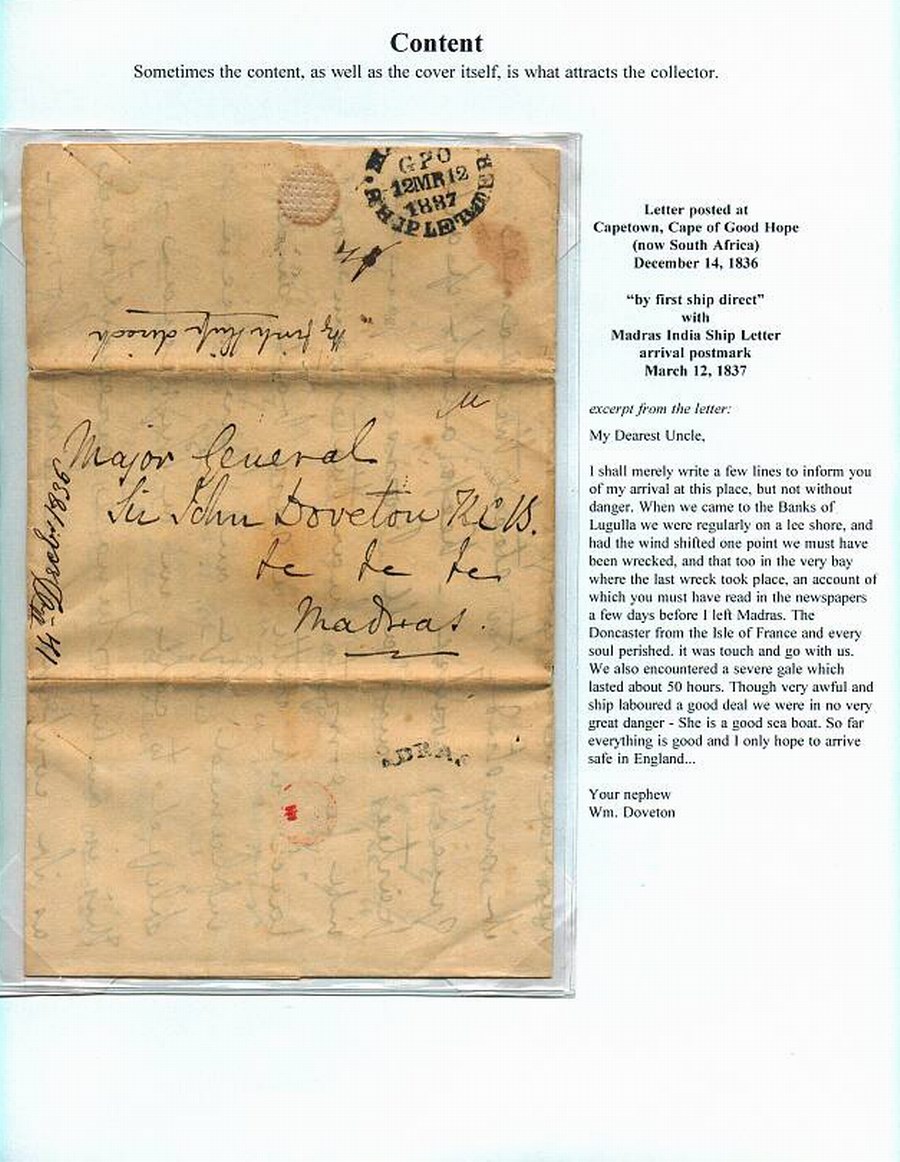 Content
Sometimes the content, as well as the cover itself, is what attracts the collector.
GPO
12MR12
1837
SHIP LETTER
By first Ship direct
Major General
Sir John Doveton K.C.B.
&c &c &c
Madras.
14th Decbr 1836
Letter posted at
Capetown, Cape of Good Hope
(now South Africa)
December 14, 1836
“by first ship direct”
with
Madras India Ship Letter
arrival postmark
March 12, 1837
excerpt from the letter:
My Dearest Uncle,
I shall merely write a few lines to inform you
of my arrival at this place, but not without
danger. When we came to the Banks of
Lugulla we were regularly on a lee shore, and
had the wind shifted one point we must have
been wrecked, and that too in the very bay
where the last wreck took place, an account of
which you must have read in the newspapers
a few days before I left Madras. The
Doncaster from the Isle of France and every
soul perished. it was touch and go with us.
We also encountered a severe gale which
lasted about 50 hours. Though very awful and
ship laboured a good deal we were in no very
great danger - She is a good sea boat. So far
everything is good and I only hope to arrive
safe in England...
Your nephew
Wm. Doveton